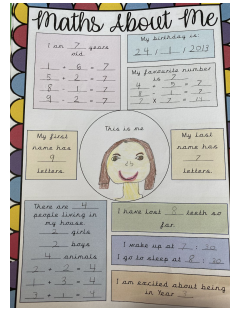 Maths About Me
I am 7 years
old.
1 + 6 = 7
5 + 2 = 7
8 - 1 = 7
9 - 2 = 7
My birthday is:
24 / 1 / 2013
My favourite number
is 7
This is me
My first
name has
9
letters.
My last
name has
7
letters.
There are 4
people living in
my house.
2 girls
2 boys
4 animals
2 + 2 = 4
1 + 3 = 4
3 + 1 = 4
I have lost 8 teeth so
far.
I wake up at 7 : 30
I go to sleep at 8 : 30
I am excited about being
in Year